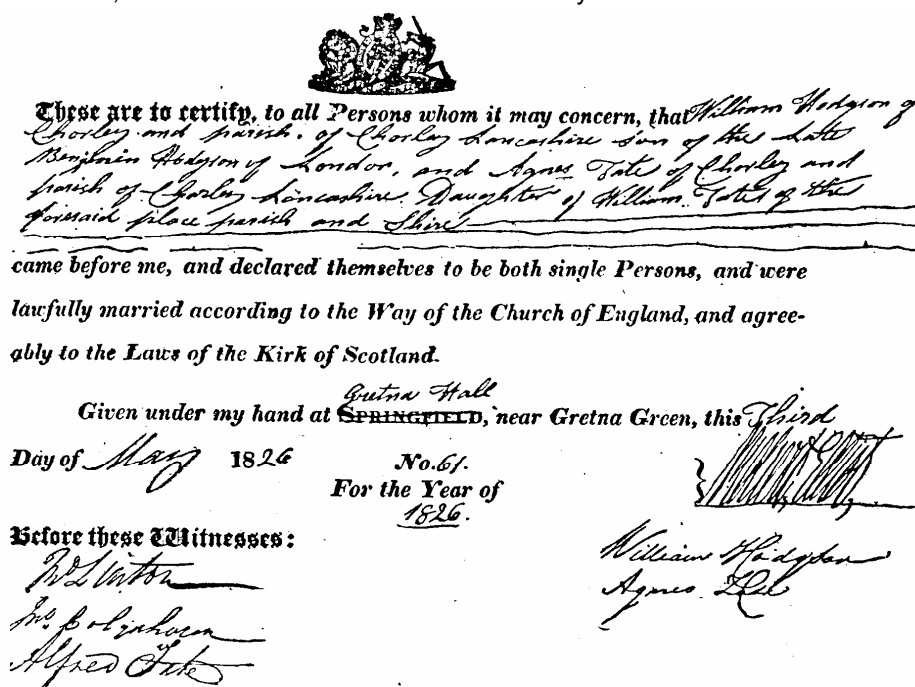 These are to certify, to all Persons whom it may concern, that William Hodgson of
Chorley and parish. of Chorley Lancashire Son of the Late
Benjamin Hodgson of London, and Agnes Tate of Chorley and
parish of Chorley Lancashire Daughter of William Tate of the
foresaid place parish and Shire
came before me, and declared themselves to be both single Persons, and were
lawfully married according to the Way of the Church of England, and agree-
ably to the Laws of the Kirk of Scotland.
Gretna Hall
Given under my hand at SPRINGFIELD, near Gretna Green, this Third
Day of May 1826
No. 61.
For the Year of
1826.
Before these Witnesses:
Linton
William Hodgson
Agnes
Alfred Tate